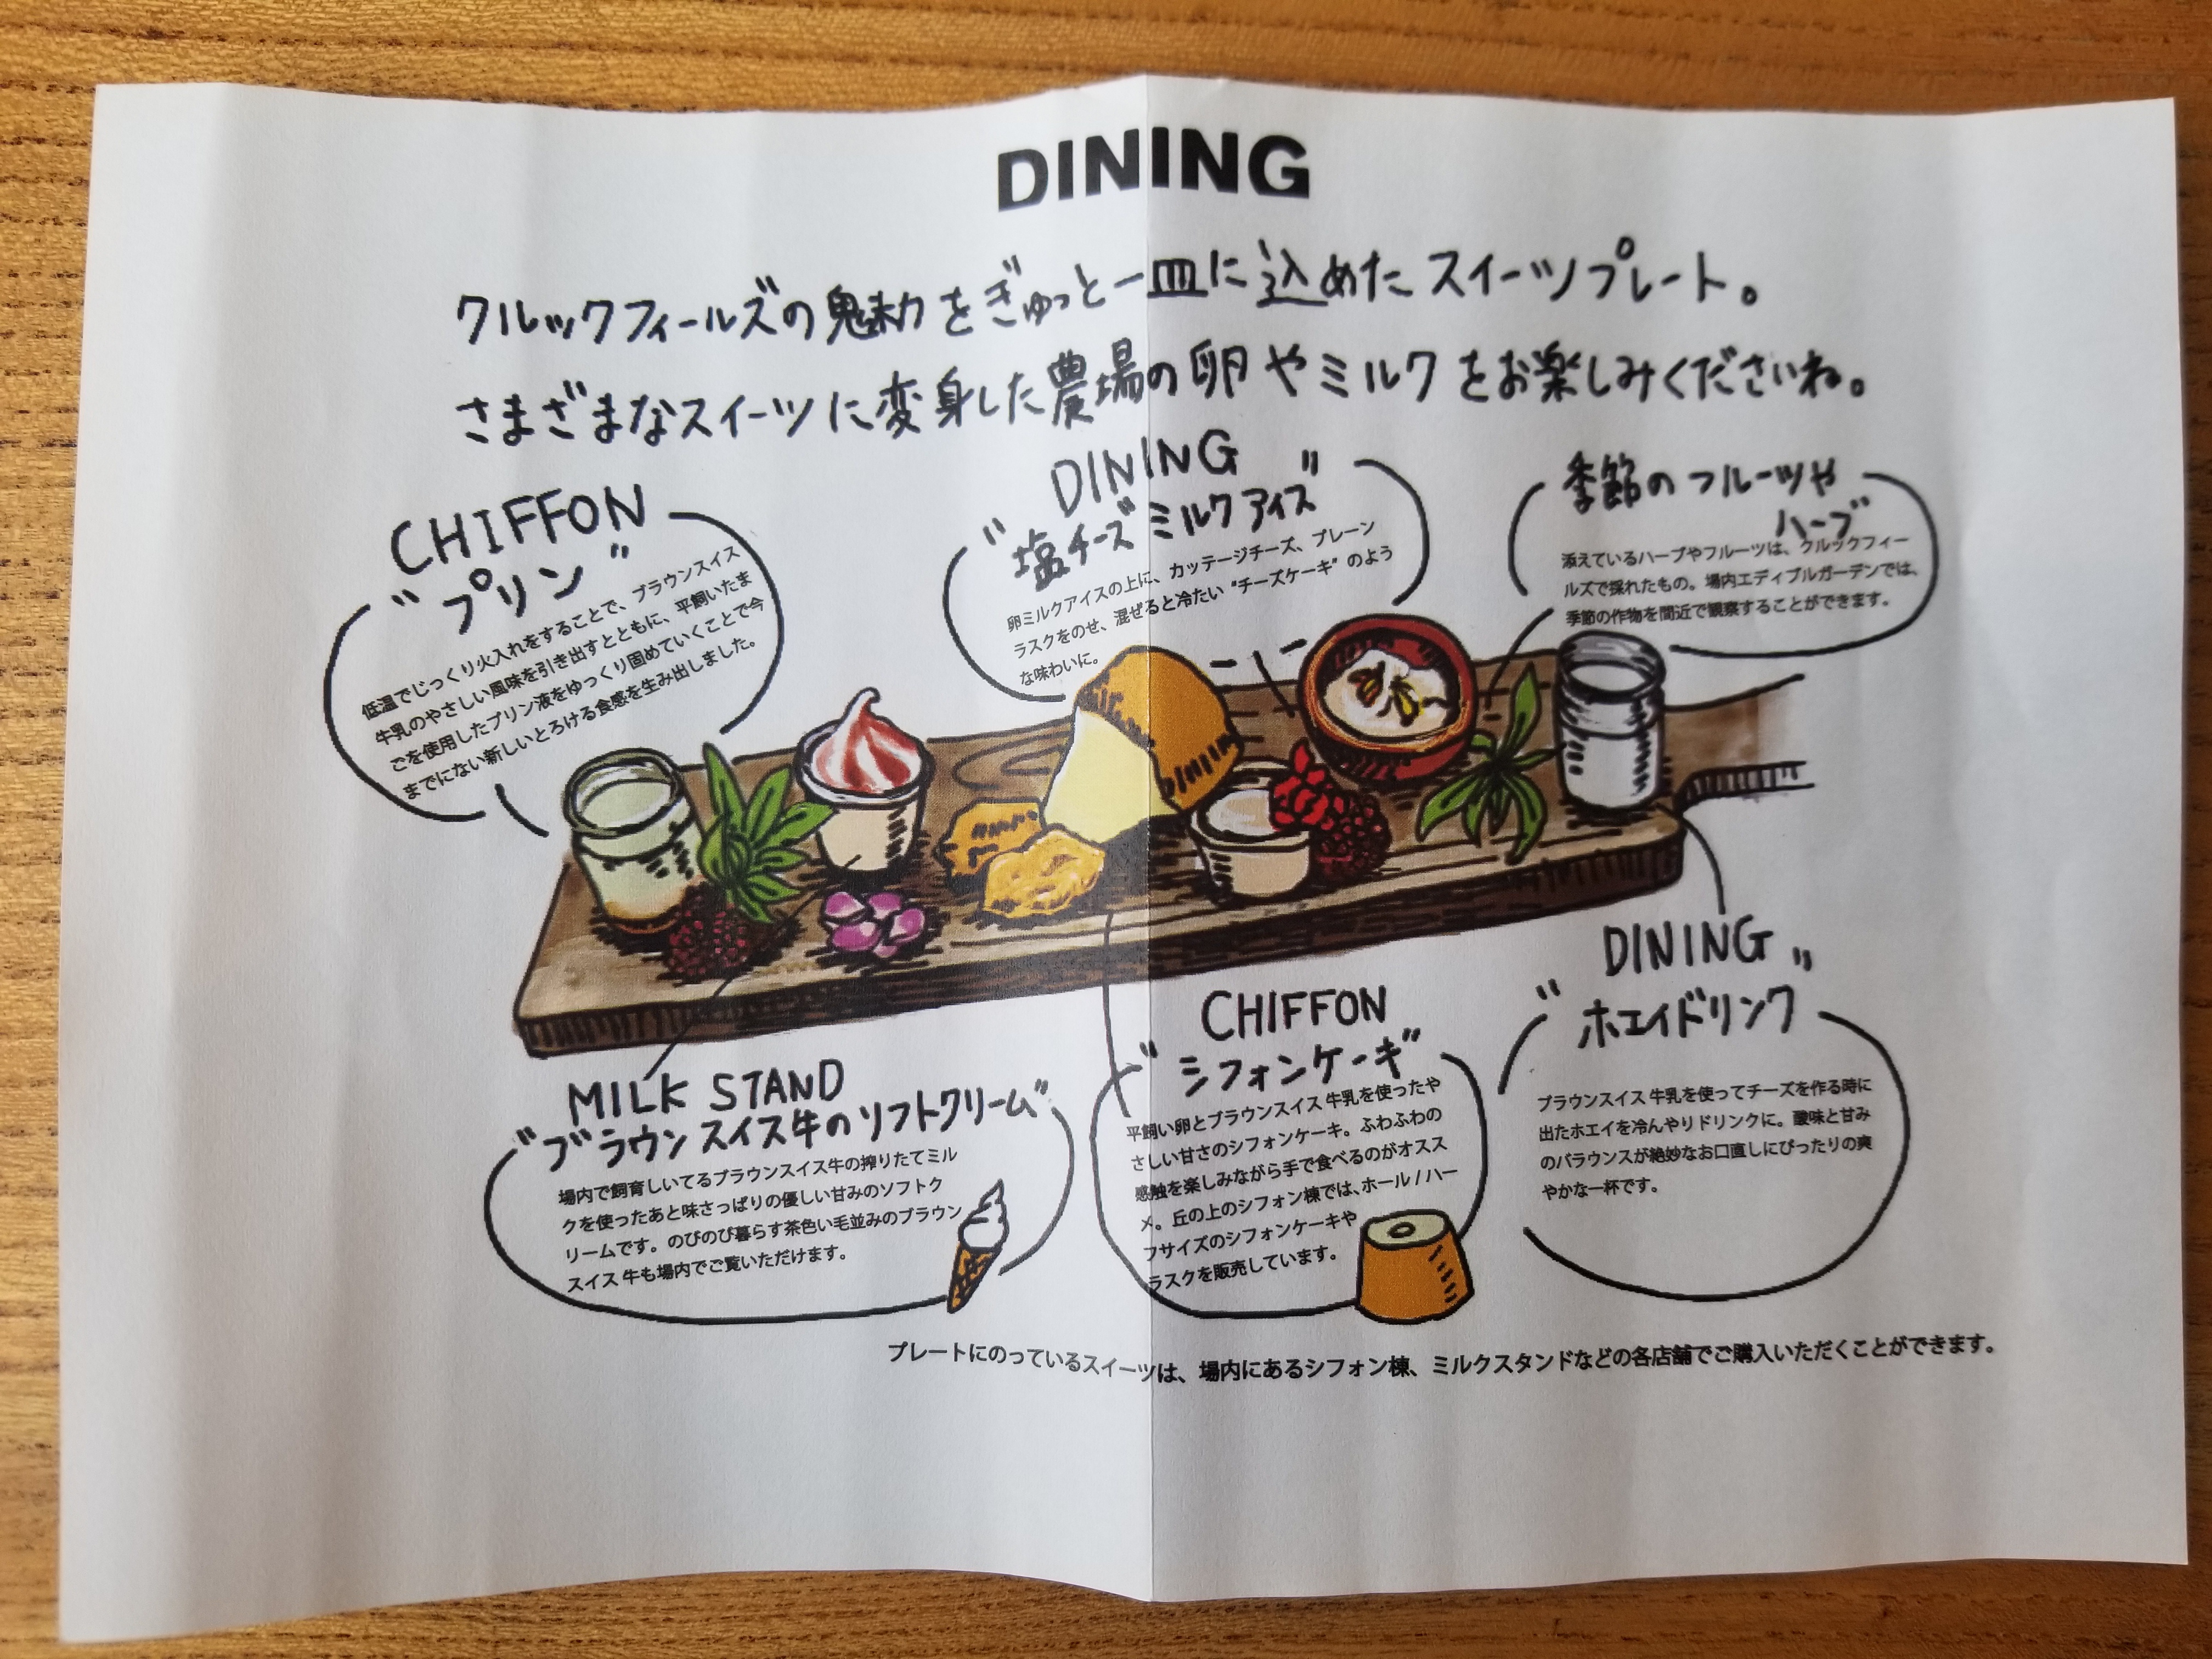 DINING
クルックフィールズの魅力をぎゅっと一皿に込めたスイーツプレート。
さまざまなスイーツに変身した農場の卵やミルクをお楽しみくださいね。
CHIFFON
"プリン"
低温でじっくり火入れをすることで、ブラウンスイス
牛乳のやさしい風味を引き出すとともに、平飼いたま
ごを使用したプリン液をゆっくり固めていくことで今
までにない新しいとろける食感を生み出しました。
DINING
"塩チーズミルクアイス"
卵ミルクアイスの上に、カッテージチーズ、プレーン
ラスクをのせ、混ぜると冷たい"チーズケーキ"のよう
な味わいに。
季節のフルーツや
ハーブ
添えているハーブやフルーツは、クルックフィー
ルズで採れたもの。場内エディブルガーデンでは、
季節の作物を間近で観察することができます。
MILK STAND
"ブラウンスイス牛のソフトクリーム"
場内で飼育しいてるブラウンスイス牛の搾りたてミル
クを使ったあと味さっぱりの優しい甘みのソフトク
リームです。のびのび暮らす茶色い毛並みのブラウン
スイス牛も場内でご覧いただけます。
CHIFFON
"シフォンケーキ"
平飼い卵とブラウンスイス牛乳を使ったや
さしい甘さのシフォンケーキ。ふわふわの
感触を楽しみながら手で食べるのがオスス
メ。丘の上のシフォン棟では、ホール/ハー
フサイズのシフォンケーキや
ラスクを販売しています。
DINING
"ホエイドリンク"
ブラウンスイス牛乳を使ってチーズを作る時に
出たホエイを冷んやりドリンクに。酸味と甘み
のバラウンスが絶妙なお口直しにぴったりの爽
やかな一杯です。
プレートにのっているスイーツは、場内にあるシフォン棟、ミルクスタンドなどの各店舗でご購入いただくことができます。